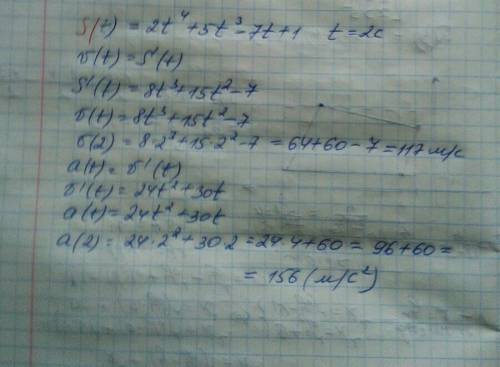 S(t) = 2t⁴+5t³-7t+1 t=2c
v(t)=S'(t)
S'(t)=8t³+15t²-7
v(t)=8t³+15t²-7
v(2)=8·2³+15·2²-7=64+60-7=117 м/с
a(t)=v'(t)
v'(t)=24t²+30t
a(t)=24t²+30t
a(2)=24·2²+30·2=24·4+60=96+60=
=156(м/с²)